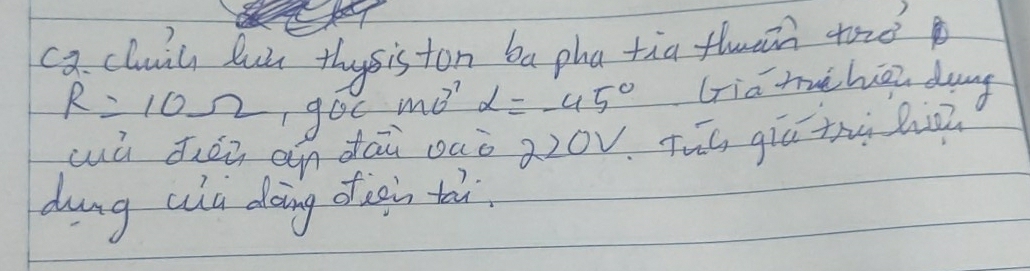 C2. chỉnh lưu thysiston ba pha tia thuần trở
R = 10Ω, góc mở α = 45°. Giá trị hiệu dụng
của điện áp đầu vào 220V. Tính giá trị hiệu
dụng của dòng điện tải.